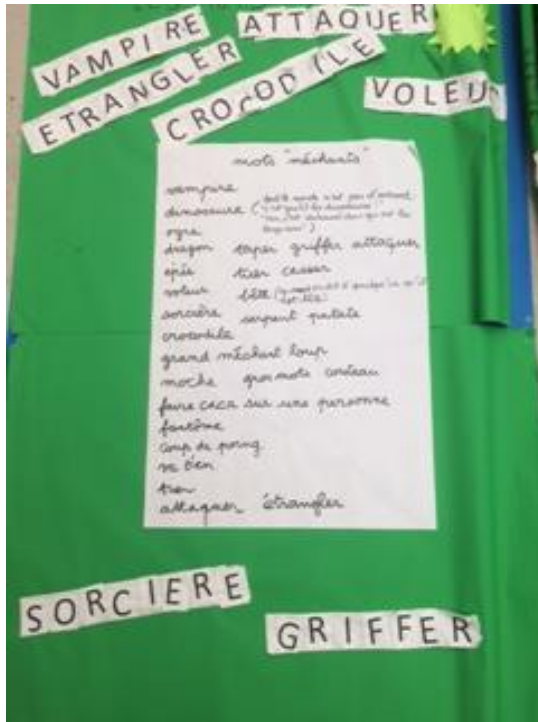 VAMPIRE
ATTAQUER
ETRANGLER
CROCODILE
VOLEUR
mots "méchants"
vampire
dinosaure (
ogre
dragon taper griffer attaquer
épée tuer casser
voleur bête
sorcière serpent patate
crocodile
grand méchant loup
moche gros mots couteau
faire caca sur une personne
fantôme
coup de poing
va t'en
tuer
attaquer étrangler
SORCIERE
GRIFFER